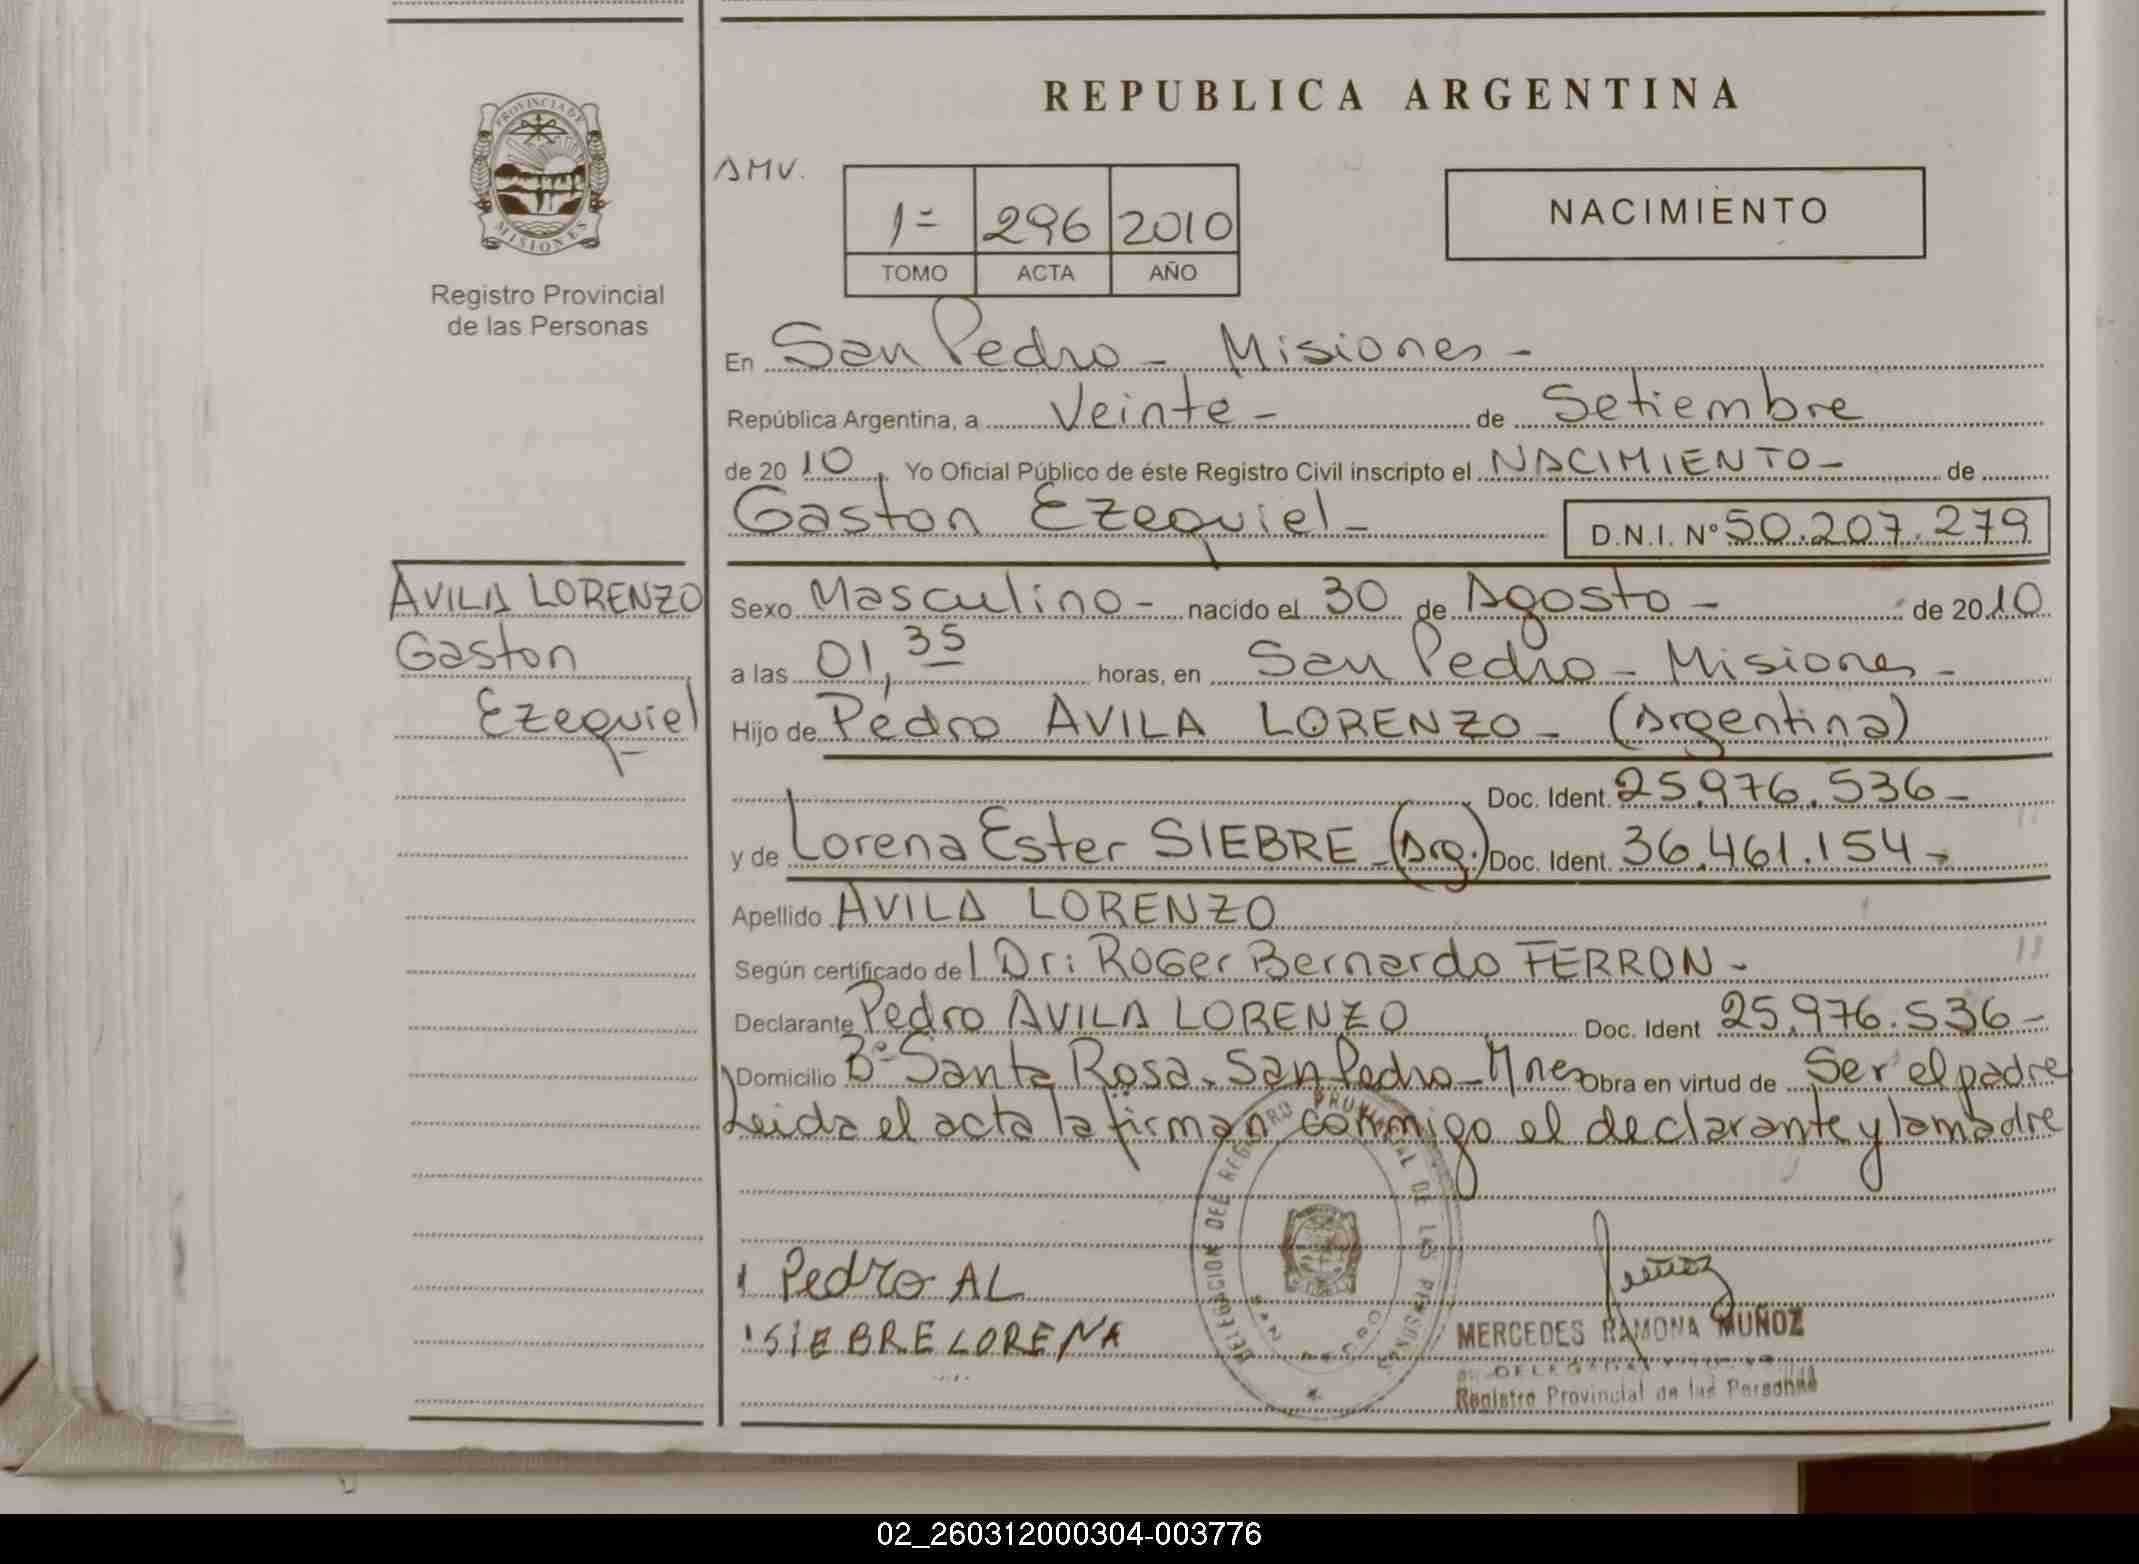 REPUBLICA ARGENTINA
PROVINCIA DE
MISIONES
Registro Provincial
de las Personas
AMV.
1= 296 2010
TOMO ACTA AÑO
NACIMIENTO
En San Pedro - Misiones -
República Argentina, a Veinte - de Setiembre
de 20 10, Yo Oficial Público de éste Registro Civil inscripto el NACIMIENTO - de
Gaston Ezequiel - D.N.I. Nº 50.207.279
AVILA LORENZO
Gaston
Ezequiel
Sexo Masculino - nacido el 30 de Agosto - de 20 10
a las 01,35 horas, en San Pedro - Misiones -
Hijo de Pedro AVILA LORENZO - (Argentina)
Doc. Ident. 25.976.536 -
y de Lorena Ester SIEBRE - (Arg.) Doc. Ident. 36.461.154 -
Apellido AVILA LORENZO
Según certificado del Dr: ROGer Bernardo FERRON -
Declarante Pedro AVILA LORENZO Doc. Ident 25.976.536 -
Domicilio Bº Santa Rosa - San Pedro - Mnes Obra en virtud de Ser el padre
Leida el acta la firman conmigo el declarante y la madre
DELEGACION DEL REGISTRO PROVINCIAL DE LAS PERSONAS
SAN PEDRO
Pedro AL
SIEBRE LORENA
Muñoz
MERCEDES RAMONA MUÑOZ
Registro Provincial de las Personas
02_260312000304-003776